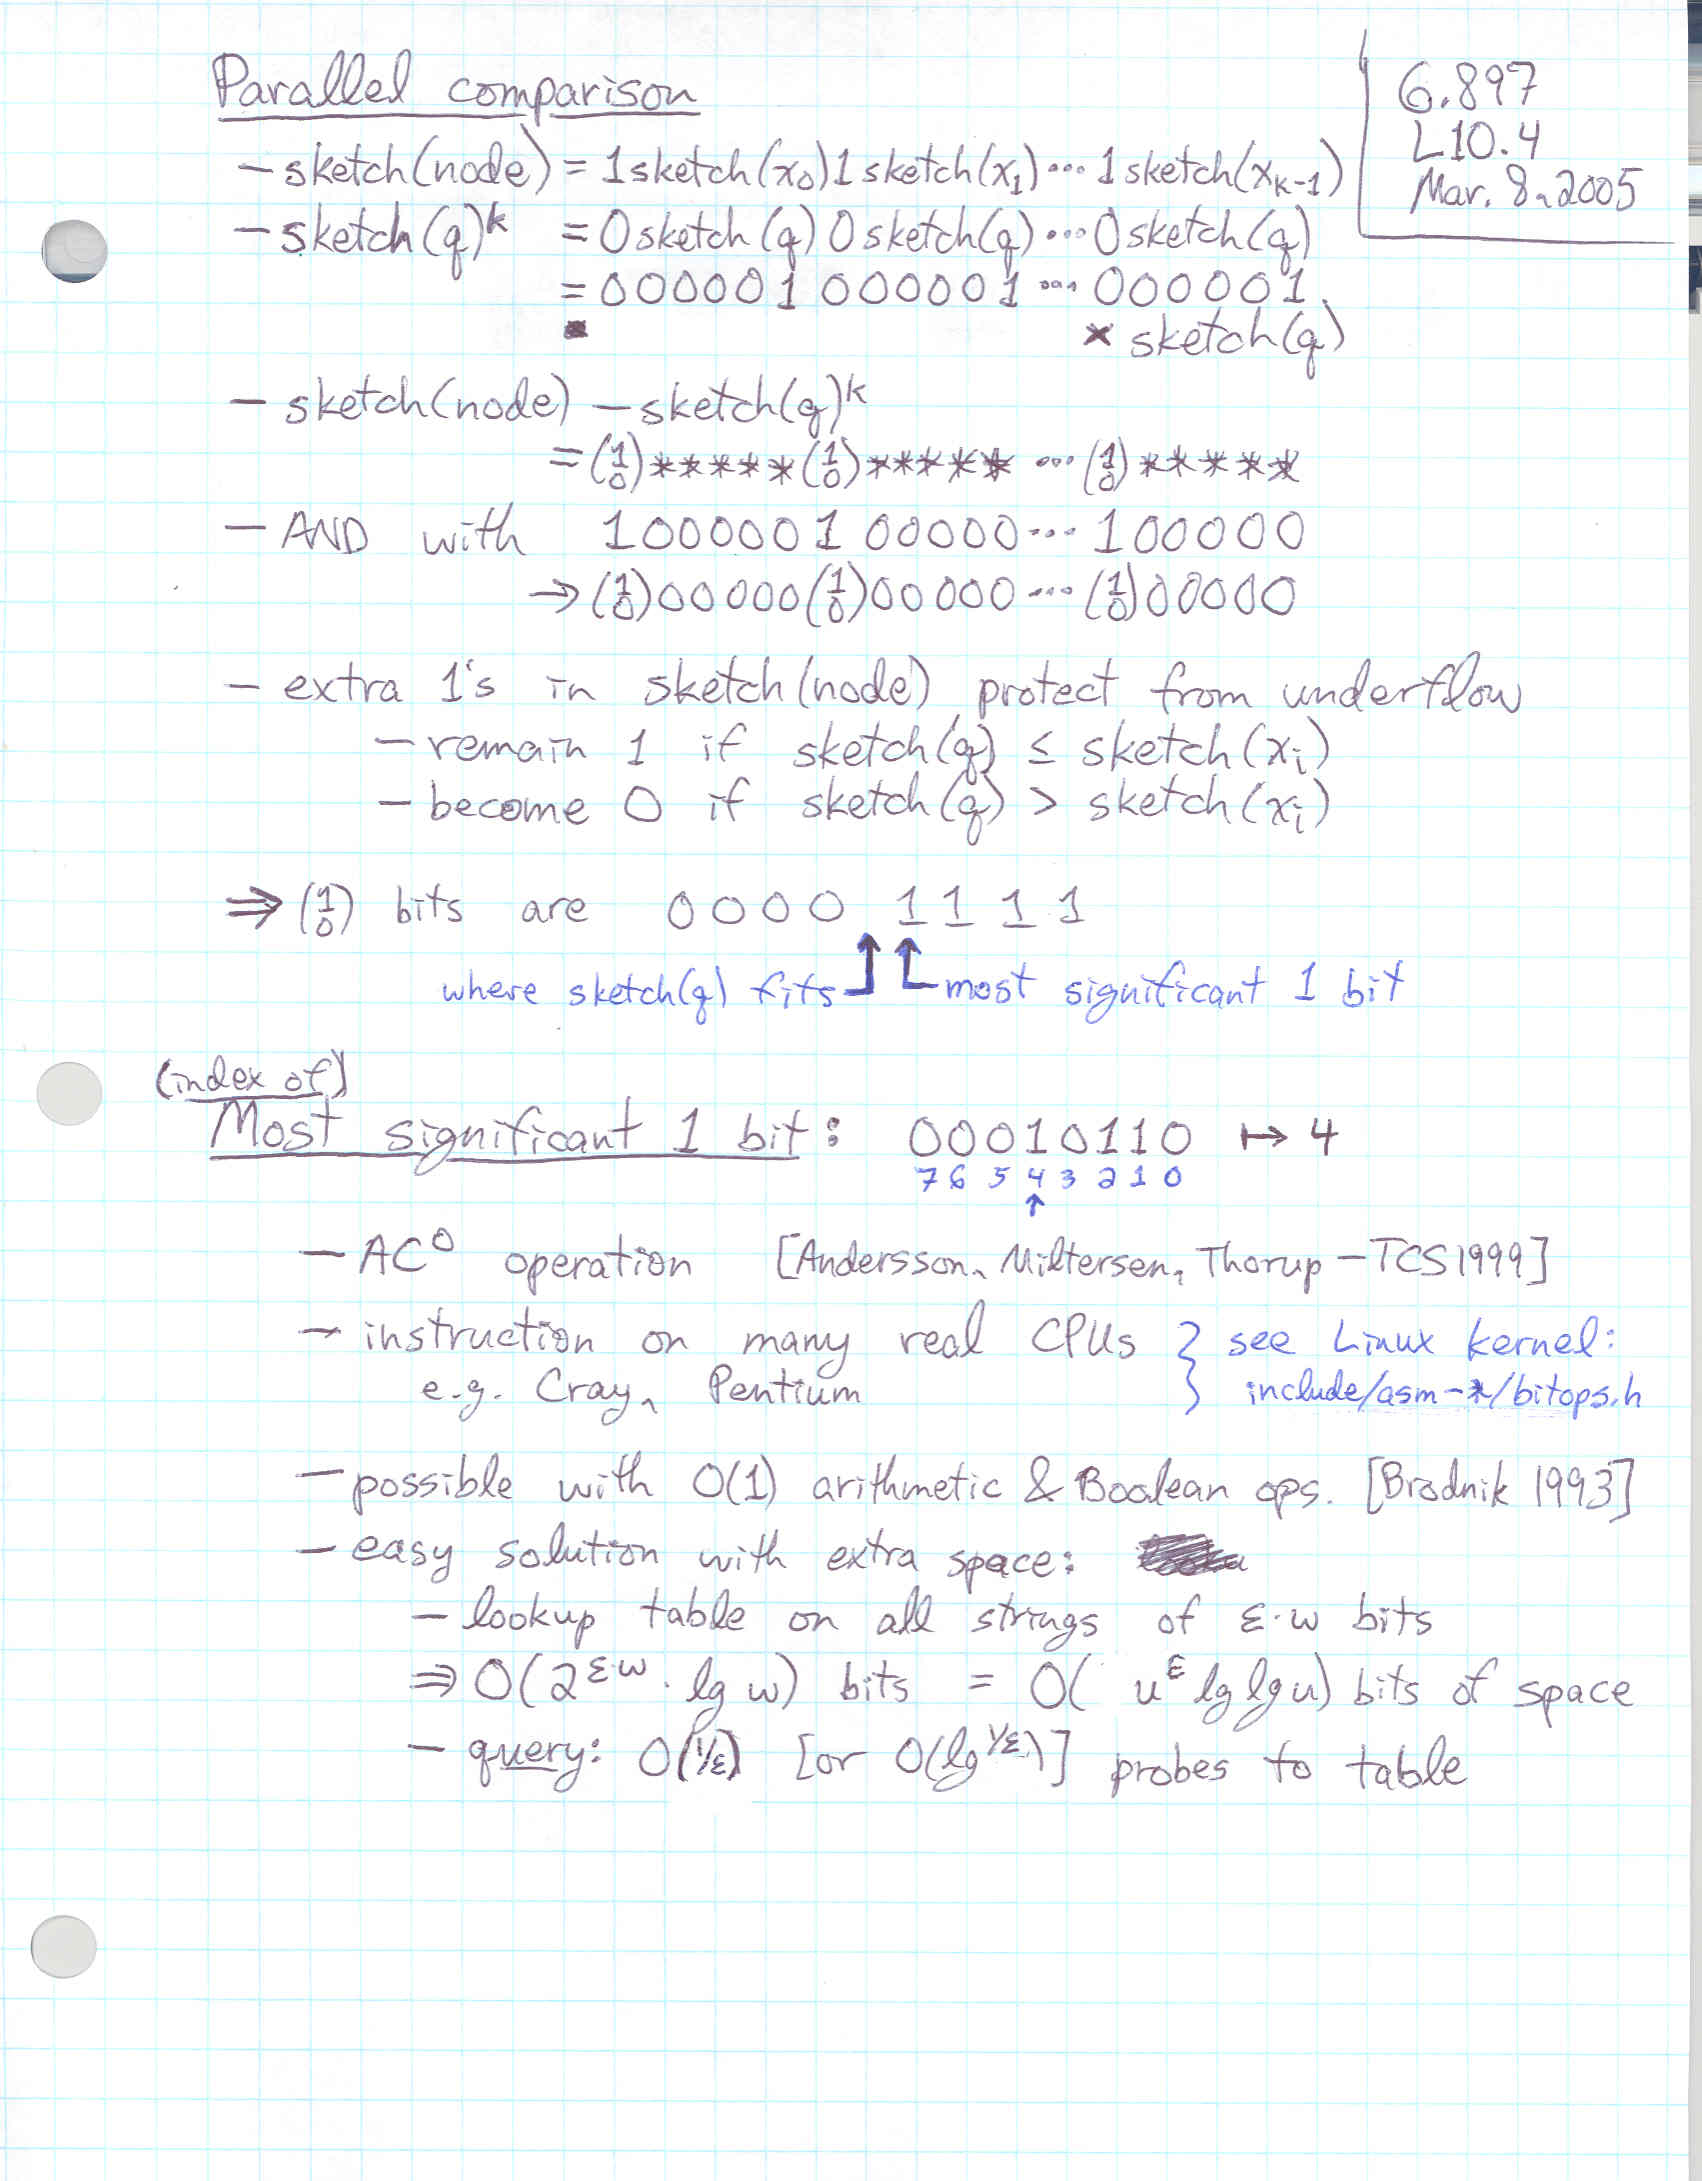 Parallel comparison
6.897
L10.4
Mar. 8, 2005
- sketch(node) = 1 sketch(x₀) 1 sketch(x₁) ... 1 sketch(xₖ₋₁)
- sketch(q)ᵏ = 0 sketch(q) 0 sketch(q) ... 0 sketch(q)
= 000001 000001 ... 000001
* sketch(q)
- sketch(node) - sketch(q)ᵏ
= (1/0)*****(1/0)***** ... (1/0)*****
- AND with 100000 1 00000 ... 100000
⇒ (1/0)00000(1/0)00000 ... (1/0)00000
- extra 1's in sketch(node) protect from underflow
- remain 1 if sketch(q) ≤ sketch(xᵢ)
- become 0 if sketch(q) > sketch(xᵢ)
⇒ (1/0) bits are 0 0 0 0 1 1 1 1
where sketch(q) fits ↑ ↑ most significant 1 bit
(index of)
Most significant 1 bit: 00010110 ↦ 4
7 6 5 4 3 2 1 0
↑
- AC⁰ operation [Andersson, Miltersen, Thorup - TCS 1999]
- instruction on many real CPUs } see Linux kernel:
e.g. Cray, Pentium include/asm-*/bitops.h
- possible with O(1) arithmetic & Boolean ops. [Brodnik 1993]
- easy solution with extra space:
- lookup table on all strings of ε·w bits
⇒ O(2^(ε·w) · lg w) bits = O( u^ε lg lg u) bits of space
- query: O(1/ε) [or O(lg 1/ε)] probes to table